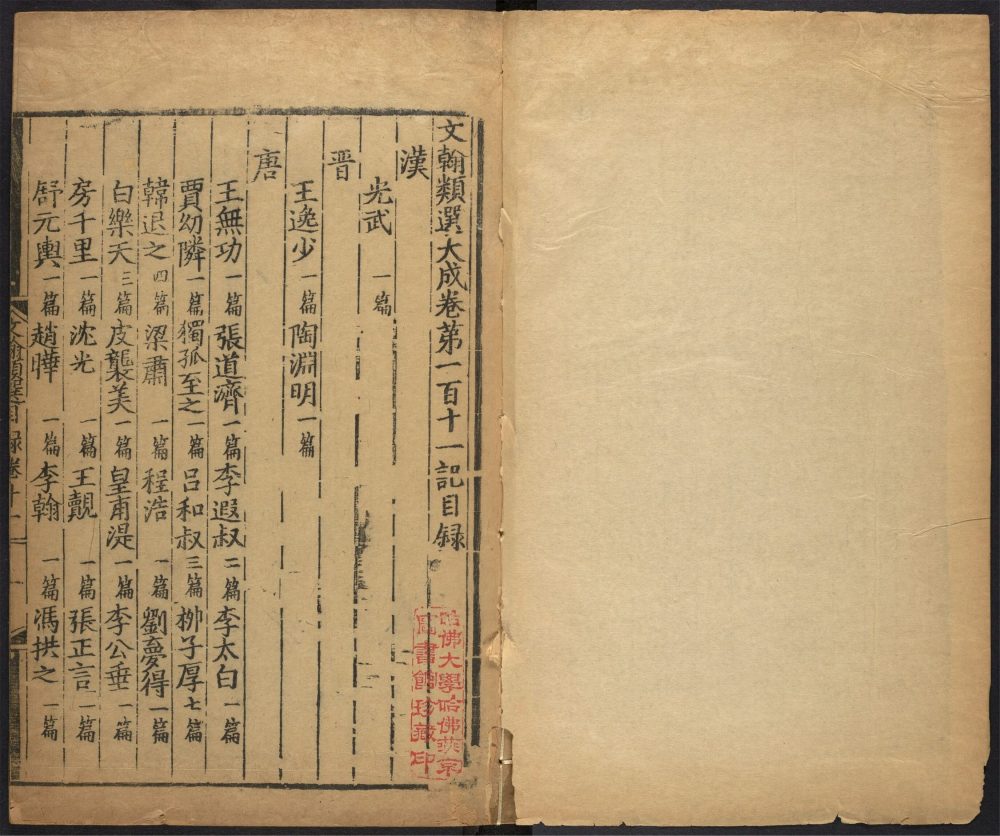 文翰類選大成卷第一百十一記目録
漢
光武 一篇
晋
王逸少 一篇 陶淵明 一篇
唐
王無功 一篇 張道濟 一篇 李遐叔 二篇 李太白 一篇
賈幼隣 一篇 獨孤至之 一篇 吕和叔 三篇 柳子厚 七篇
韓退之 四篇 梁肅 一篇 程浩 一篇 劉夢得 一篇
白樂天 三篇 皮襲美 一篇 皇甫湜 一篇 李公垂 一篇
房千里 一篇 沈光 一篇 王觀 一篇 張正言 一篇
舒元輿 一篇 趙曄 一篇 李翰 一篇 馮拱之 一篇
文翰類選目録卷十一
哈佛大學哈佛燕京
圖書館珍藏印